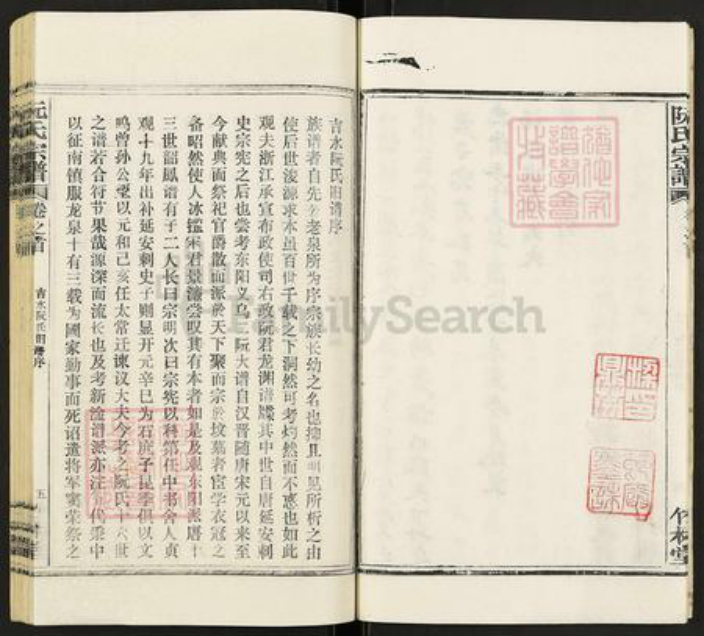 阮氏宗譜
竹林堂
譜學會
吉水阮氏旧谱序
族谱者自先公老泉所为序宗族长幼之名也摭且明见所析之由
使后世浚源求本虽百世千载之下洞然可考灼然而不惑也如此
观夫浙江承宣布政使司右政阮君龙渊谱牒其中世自唐延安刺
史宗宪之后也尝考东阳义乌二阮大谱自汉晋随唐宋元以来至
今献典而祭祀官爵散而派於天下聚而宗於坟墓者官学衣冠之
备昭然使人冰鉴宋君景濂尝叹其有本者如是及观东阳派唐十
三世韶凤谱有子二人长曰宗明次曰宗宪以科第任中书舍人贞
观十九年出补延安刺史子则显开元辛巳为石庶子昆季俱以文
鸣曾孙公燮以元和己亥任太常迁谏议大夫今考之阮氏十六世
之谱若合符节果哉源深而流长也及考新淦谱派亦注代秉中
以征南镇服龙泉十有三载为國家勤事而死诏遣将军窦荣祭之
阮氏宗譜
卷之首
吉水阮氏旧谱序
五
FamilySearch